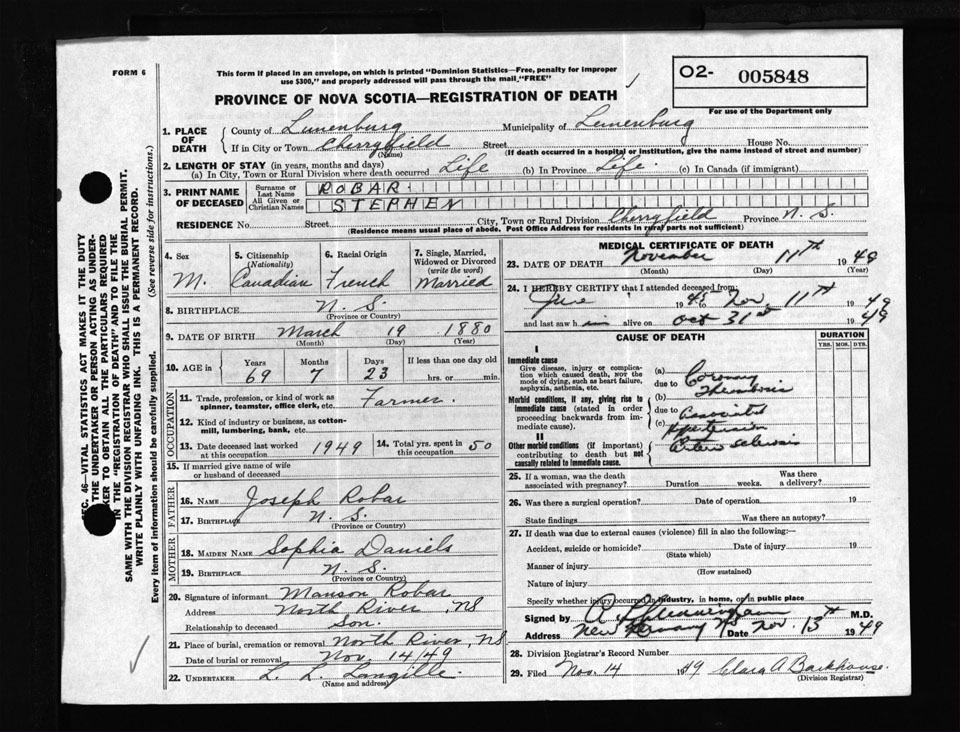 FORM 6
This form if placed in an envelope, on which is printed "Dominion Statistics—Free, penalty for improper
use $300," and properly addressed will pass through the mail, "FREE"
O2- 005848
For use of the Department only
PROVINCE OF NOVA SCOTIA—REGISTRATION OF DEATH
SEC. 46—VITAL STATISTICS ACT MAKES IT THE DUTY
THE UNDERTAKER OR PERSON ACTING AS UNDER-
TAKER TO OBTAIN ALL THE PARTICULARS REQUIRED
IN THE "REGISTRATION OF DEATH" AND TO FILE THE
SAME WITH THE DIVISION REGISTRAR WHO SHALL ISSUE THE BURIAL PERMIT.
WRITE PLAINLY WITH UNFADING INK. THIS IS A PERMANENT RECORD.
Every item of information should be carefully supplied. (See reverse side for instructions.)
1. PLACE OF DEATH
County of Lunenburg Municipality of Lunenburg
If in City or Town Cherryfield Street House No.
(Name) (If death occurred in a hospital or institution, give the name instead of street and number)
2. LENGTH OF STAY (in years, months and days)
(a) In City, Town or Rural Division where death occurred Life (b) In Province Life. (c) In Canada (if immigrant)
3. PRINT NAME OF DECEASED
Surname or Last Name ROBAR
All Given or Christian Names STEPHEN
RESIDENCE No. Street City, Town or Rural Division Cherryfield Province N. S.
(Residence means usual place of abode. Post Office Address for residents in rural parts not sufficient)
4. Sex 5. Citizenship (Nationality) 6. Racial Origin 7. Single, Married, Widowed or Divorced (write the word)
M. Canadian French Married
8. BIRTHPLACE N. S.
(Province or Country)
9. DATE OF BIRTH March 19 1880
(Month) (Day) (Year)
10. AGE in Years Months Days If less than one day old
69 7 23 hrs. or min.
OCCUPATION
11. Trade, profession, or kind of work as spinner, teamster, office clerk, etc. Farmer.
12. Kind of industry or business, as cotton-mill, lumbering, bank, etc.
13. Date deceased last worked at this occupation 1949 14. Total yrs. spent in this occupation 50
15. If married give name of wife or husband of deceased
FATHER
16. NAME Joseph Robar
17. BIRTHPLACE N. S.
(Province or Country)
MOTHER
18. MAIDEN NAME Sophia Daniels
19. BIRTHPLACE N. S.
(Province or Country)
20. Signature of informant Manson Robar
Address North River, NS
Relationship to deceased Son.
21. Place of burial, cremation or removal North River, NS
Date of burial or removal Nov. 14/49
22. UNDERTAKER L. L. Langille.
(Name and address)
MEDICAL CERTIFICATE OF DEATH
23. DATE OF DEATH November 11th 1949
(Month) (Day) (Year)
24. I HEREBY CERTIFY that I attended deceased from:
19 Nov. 11th 1949
and last saw him alive on Oct 31st 1949
CAUSE OF DEATH DURATION
YRS. MOS. DYS.
I
Immediate cause
Give disease, injury or complication which caused death, NOT the mode of dying, such as heart failure, asphyxia, asthenia, etc.
(a) Coronary
due to Thrombosis
Morbid conditions, if any, giving rise to immediate cause (stated in order proceeding backwards from immediate cause).
(b)
due to Associated
Hypertension
II
Other morbid conditions (if important) contributing to death but not causally related to immediate cause.
Arterio sclerosis
25. If a woman, was the death associated with pregnancy? Duration weeks. Was there a delivery?
26. Was there a surgical operation? Date of operation 19
State findings Was there an autopsy?
27. If death was due to external causes (violence) fill in also the following:—
Accident, suicide or homicide? Date of injury 19
(State which)
Manner of injury
(How sustained)
Nature of injury
Specify whether injury occurred in industry, in home, or in public place
Signed by M.D.
Address New Date Nov. 13th 1949
28. Division Registrar's Record Number
29. Filed Nov. 14 1949 Clara A. Barkhouse.
(Division Registrar)